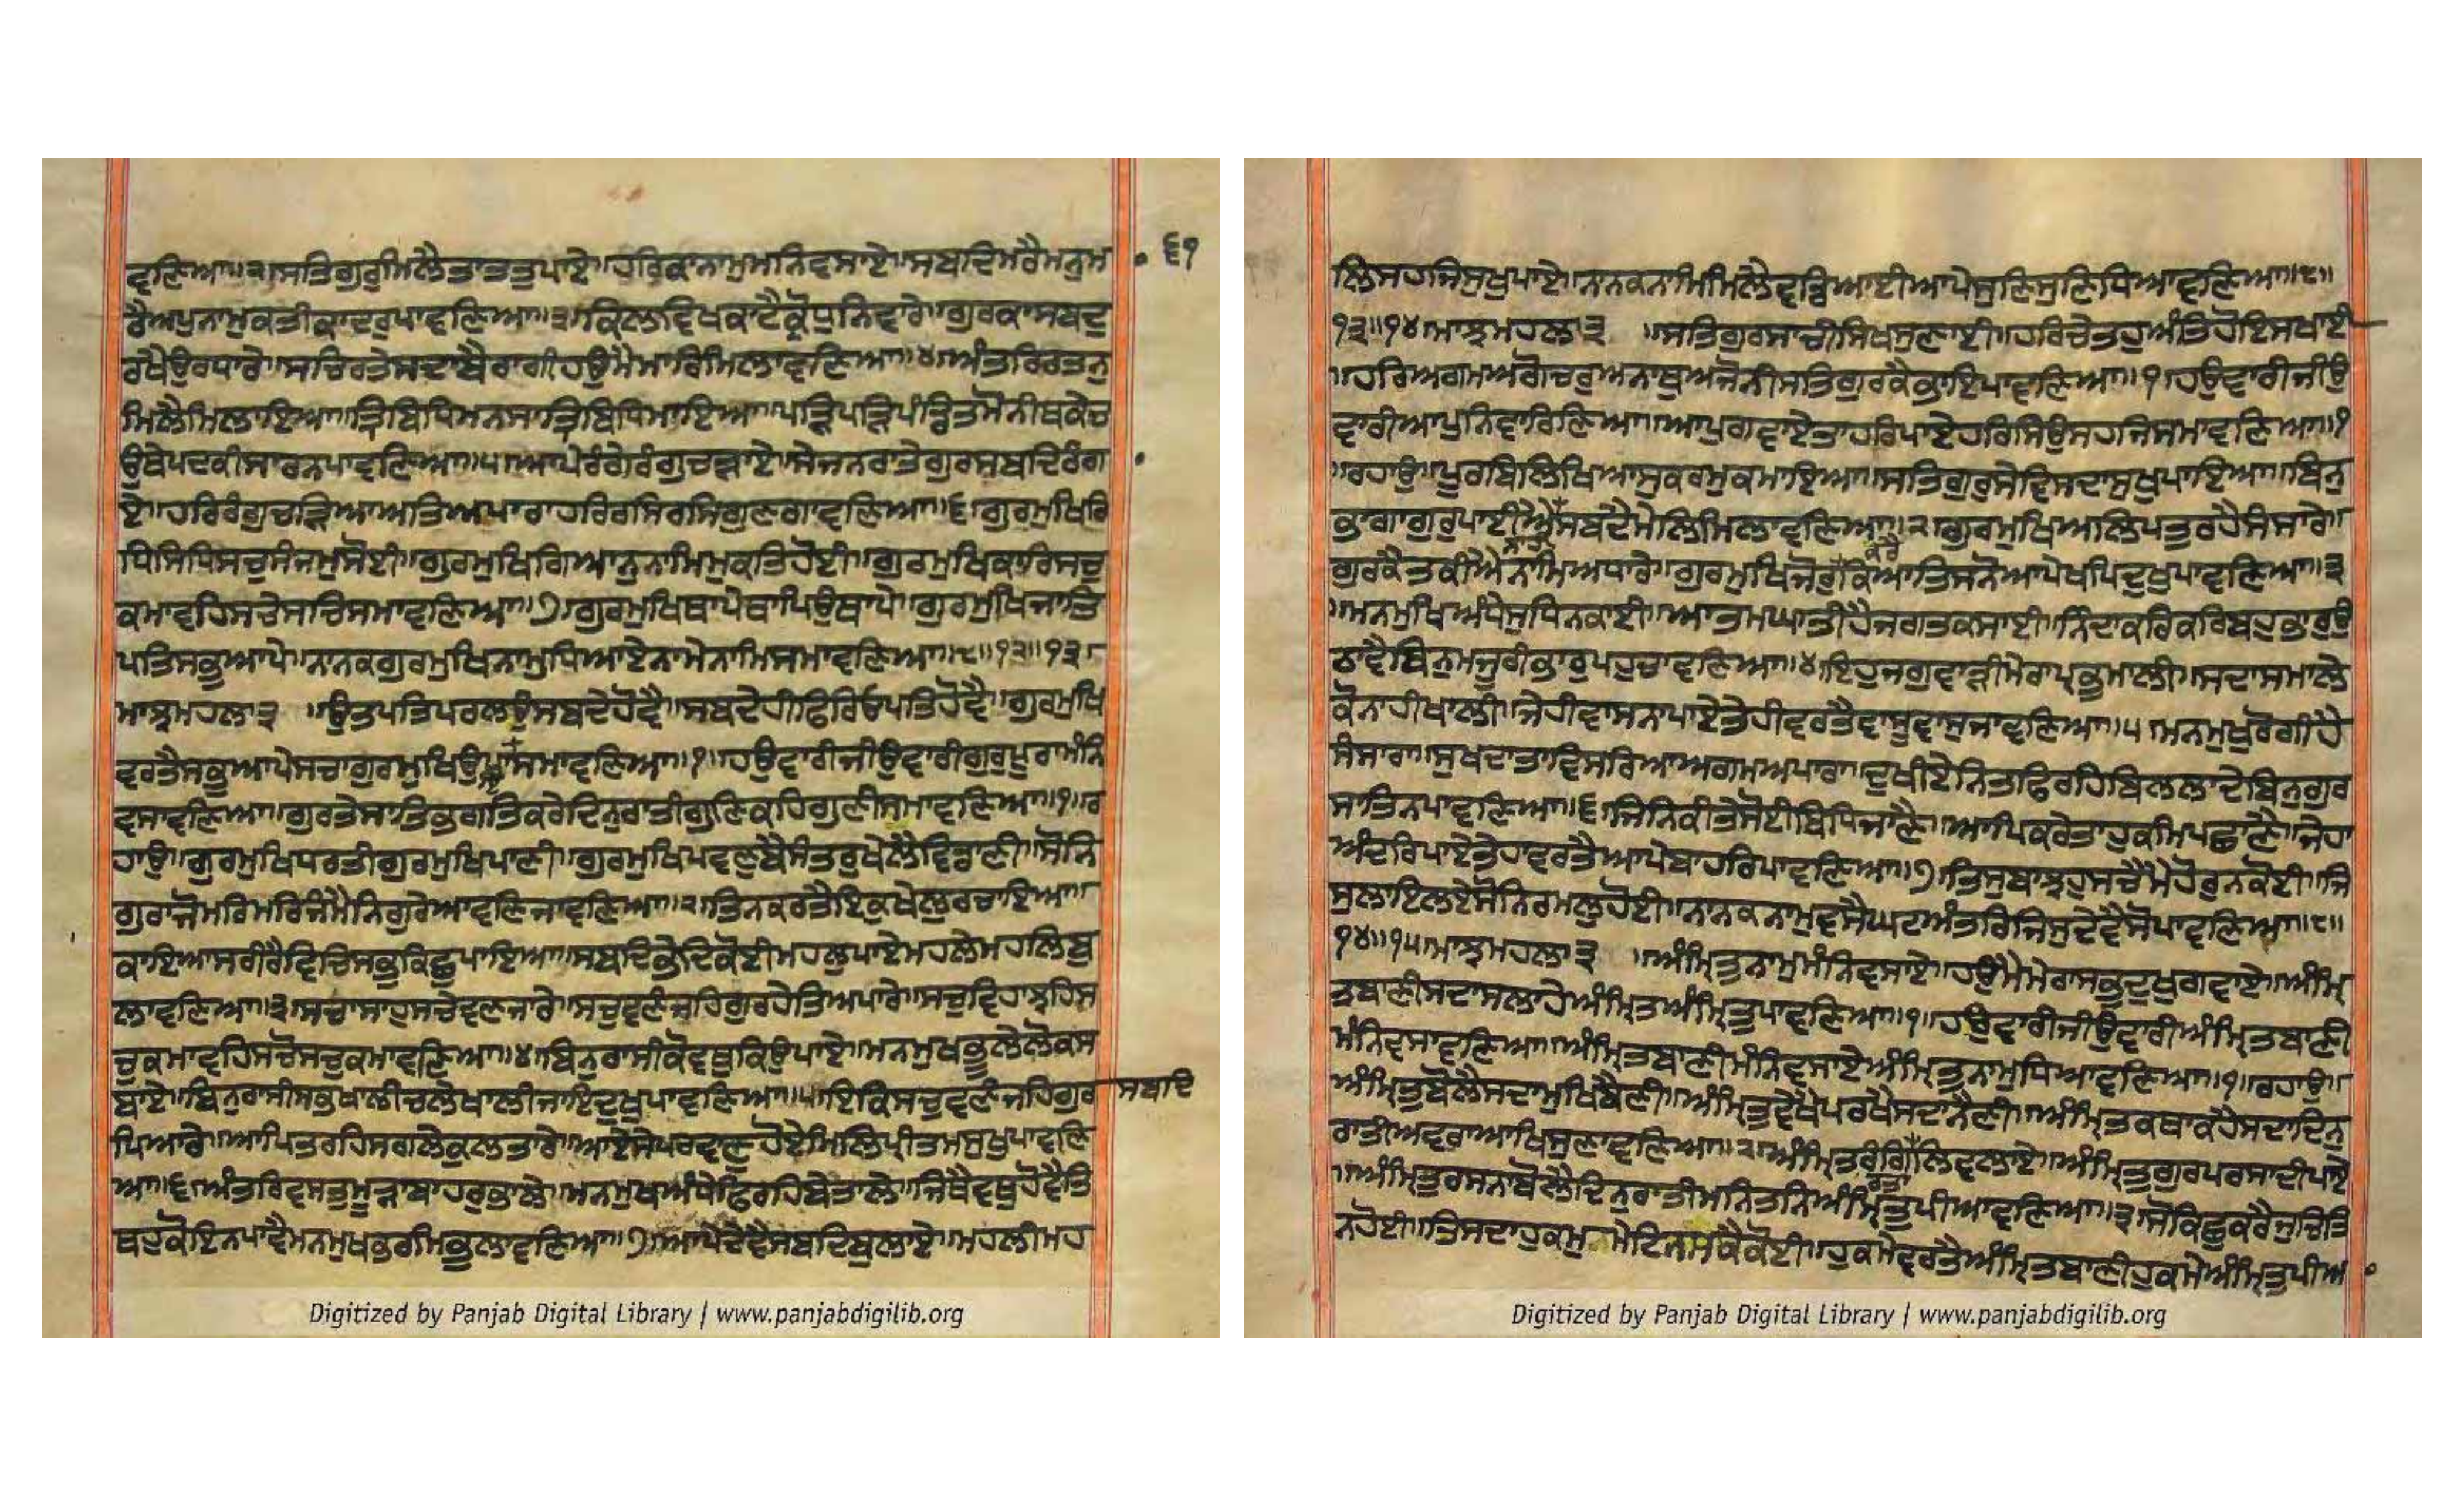 ਵਣਿਆ॥੨॥ਸਤਿਗੁਰੁਮਿਲੈਤਾਤਤੁਪਾਏ॥ਹਰਿਕਾਨਾਮੁਮਨਿਵਸਾਏ॥ਸਬਦਿਮਰੈਮਨੁਮ ੬੧
ਰੈਅਪੁਨਾਮੁਕਤੀਕਾਦਰੁਪਾਵਣਿਆ॥੩॥ਕਿਲਵਿਖਕਾਟੈਕ੍ਰੋਧੁਨਿਵਾਰੇ॥ਗੁਰਕਾਸਬਦੁ
ਰਖੈਉਰਧਾਰੇ॥ਸਚਿਰਤੇਸਦਾਬੈਰਾਗੀਹਉਮੈਮਾਰਿਮਿਲਾਵਣਿਆ॥੪॥ਅੰਤਰਿਰਤਨੁ
ਮਿਲੈਮਿਲਾਇਆ॥ਤ੍ਰਿਬਿਧਿਮਨਸਾਤ੍ਰਿਬਿਧਿਮਾਇਆ॥ਪੜ੍ਹਿਪੜ੍ਹਿਪੰਡਿਤਮੋਨੀਥਕੇਚ
ਉਥੇਪਦਕੀਸਾਰਨਪਾਵਣਿਆ॥੫॥ਆਪੇਰੰਗੇਰੰਗੁਚੜ੍ਹਾਏ॥ਸੇਜਨਰਾਤੇਗੁਰਸਬਦਿਰੰਗਾ
ਏ॥ਹਰਿਰੰਗੁਚੜ੍ਹਿਆਅਤਿਅਪਾਰਾਹਰਿਰਸਿਰਸਿਗੁਣਗਾਵਣਿਆ॥੬॥ਗੁਰਮੁਖਿਰਿ
ਧਿਸਿਧਿਸਚੁਸੰਜਮੁਸੋਈ॥ਗੁਰਮੁਖਿਗਿਆਨੁਨਾਮਿਮੁਕਤਿਹੋਈ॥ਗੁਰਮੁਖਿਕਾਰਿਸਚੁ
ਕਮਾਵਹਿਸਚੇਸਚਿਸਮਾਵਣਿਆ॥੭॥ਗੁਰਮੁਖਿਥਾਪੇਥਾਪਿਉਥਾਪੇ॥ਗੁਰਮੁਖਿਜਾਤਿ
ਪਤਿਸਭੁਆਪੇ॥ਨਾਨਕਗੁਰਮੁਖਿਨਾਮੁਧਿਆਏਨਾਮੇਨਾਮਿਸਮਾਵਣਿਆ॥੮॥੧੨॥੧੩॥
ਮਾਝਮਹਲਾ੩ ॥ਉਤਪਤਿਪਰਲਉਸਬਦੇਹੋਵੈ॥ਸਬਦੇਹੀਫਿਰਿਓਪਤਿਹੋਵੈ॥ਗੁਰਮੁਖਿ
ਵਰਤੈਸਭੁਆਪੇਸਚਾਗੁਰਮੁਖਿਉਪਾਇਸਮਾਵਣਿਆ॥੧॥ਹਉਵਾਰੀਜੀਉਵਾਰੀਗੁਰੁਪੂਰਾਮੰਨਿ
ਵਸਾਵਣਿਆ॥ਗੁਰਤੇਸਾਤਿਭਗਤਿਕਰੇਦਿਨੁਰਾਤੀਗੁਣਿਕਹਿਗੁਣੀਸਮਾਵਣਿਆ॥੧॥ਰ
ਹਾਉ॥ਗੁਰਮੁਖਿਧਰਤੀਗੁਰਮੁਖਿਪਾਣੀ॥ਗੁਰਮੁਖਿਪਵਣੁਬੈਸੰਤਰੁਖੇਲੈਵਿਡਾਣੀ॥ਸੋਨਿ
ਗੁਰਾਜੋਮਰਿਮਰਿਜੰਮੈਨਿਗੁਰੇਆਵਣਿਜਾਵਣਿਆ॥੨॥ਤਿਨਕਰਤੈਇਕੁਖੇਲੁਰਚਾਇਆ॥
ਕਾਇਆਸਰੀਰੈਵਿਚਿਸਭੁਕਿਛੁਪਾਇਆ॥ਸਬਦਿਭੇਦਿਕੋਈਮਹਲੁਪਾਏਮਹਲੇਮਹਲਿਬੁ
ਲਾਵਣਿਆ॥੩॥ਸਚਾਸਾਹੁਸਚੇਵਣਜਾਰੇ॥ਸਚੁਵਣੰਜਹਿਗੁਰਹੇਤਿਅਪਾਰੇ॥ਸਚੁਵਿਹਾਝਹਿਸ
ਚੁਕਮਾਵਹਿਸਚੋਸਚੁਕਮਾਵਣਿਆ॥੪॥ਬਿਨੁਰਾਸੀਕੋਵਥੁਕਿਉਪਾਏ॥ਮਨਮੁਖਭੂਲੇਲੋਕਸ
ਬਾਏ॥ਬਿਨੁਰਾਸੀਸਭਖਾਲੀਚਲੇਖਾਲੀਜਾਇਦੁਖੁਪਾਵਣਿਆ॥੫॥ਇਕਿਸਚੁਵਣੰਜਹਿਗੁਰ ਸਬਦਿ
ਪਿਆਰੇ॥ਆਪਿਤਰਹਿਸਗਲੇਕੁਲਤਾਰੇ॥ਆਏਸੇਪਰਵਾਣੁਹੋਏਮਿਲਿਪ੍ਰੀਤਮਸੁਖੁਪਾਵਣਿ
ਆ॥੬॥ਅੰਤਰਿਵਸਤੁਮੂੜਾਬਾਹਰੁਭਾਲੇ॥ਮਨਮੁਖਅੰਧੇਫਿਰਹਿਬੇਤਾਲੇ॥ਜਿਥੈਵਥੁਹੋਵੈਤਿ
ਥਹੁਕੋਇਨਪਾਵੈਮਨਮੁਖਭਰਮਿਭੁਲਾਵਣਿਆ॥੭॥ਆਪੇਦੇਵੈਸਬਦਿਬੁਲਾਏ॥ਮਹਲੀਮਹ
Digitized by Panjab Digital Library | www.panjabdigilib.org
ਲਿਸਹਜਿਸੁਖੁਪਾਏ॥ਨਾਨਕਨਾਮਿਮਿਲੈਵਡਿਆਈਆਪੇਸੁਣਿਸੁਣਿਧਿਆਵਣਿਆ॥੮॥
੧੩॥੧੪॥ਮਾਝਮਹਲਾ੩ ॥ਸਤਿਗੁਰਸਾਚੀਸਿਖਸੁਣਾਈ॥ਹਰਿਚੇਤਹੁਅੰਤਿਹੋਇਸਖਾਈ
॥ਹਰਿਅਗਮਅਗੋਚਰੁਅਨਾਥੁਅਜੋਨੀਸਤਿਗੁਰਕੈਭਾਇਪਾਵਣਿਆ॥੧॥ਹਉਵਾਰੀਜੀਉ
ਵਾਰੀਆਪੁਨਿਵਾਰਿਣਿਆ॥ਆਪੁਗਵਾਏਤਾਹਰਿਪਾਏਹਰਿਸਿਉਸਹਜਿਸਮਾਵਣਿਆ॥੧
॥ਰਹਾਉ॥ਪੂਰਬਿਲਿਖਿਆਸੁਕਰਮੁਕਮਾਇਆ॥ਸਤਿਗੁਰੁਸੇਵਿਸਦਾਸੁਖੁਪਾਇਆ॥ਬਿਨੁ
ਭਾਗਾਗੁਰੁਪਾਈਐਨਾਹੀਸਬਦੈਮੇਲਿਮਿਲਾਵਣਿਆ॥੨॥ਗੁਰਮੁਖਿਅਲਿਪਤੁਰਹੈਸੰਸਾਰੇ॥
ਗੁਰਕੈਤਕੀਐਨਾਮਿਅਧਾਰੇ॥ਗੁਰਮੁਖਿਜੋਰੁਕਰੇਕਿਆਤਿਸਨੋਆਪੇਖਪਿਦੁਖੁਪਾਵਣਿਆ॥੩
॥ਮਨਮੁਖਿਅੰਧੇਸੁਧਿਨਕਾਈ॥ਆਤਮਘਾਤੀਹੈਜਗਤਕਸਾਈ॥ਨਿੰਦਾਕਰਿਕਰਿਬਹੁਭਾਰੁਉ
ਠਾਵੈਬਿਨੁਮਜੂਰੀਭਾਰੁਪਹੁਚਾਵਣਿਆ॥੪॥ਇਹੁਜਗੁਵਾੜੀਮੇਰਾਪ੍ਰਭੁਮਾਲੀ॥ਸਦਾਸਮਾਲੇ
ਕੋਨਾਹੀਖਾਲੀ॥ਜੇਹੀਵਾਸਨਾਪਾਏਤੇਹੀਵਰਤੈਵਾਸੂਵਾਸੁਜਾਵਣਿਆ॥੫॥ਮਨਮੁਖੁਰੋਗੀਹੈ
ਸੰਸਾਰਾ॥ਸੁਖਦਾਤਾਵਿਸਰਿਆਅਗਮਅਪਾਰਾ॥ਦੁਖੀਏਨਿਤਿਫਿਰਹਿਬਿਲਲਾਦੇਬਿਨੁਗੁਰ
ਸਾਤਿਨਪਾਵਣਿਆ॥੬॥ਜਿਨਿਕੀਤੇਸੋਈਬਿਧਿਜਾਣੈ॥ਆਪਿਕਰੇਤਾਹੁਕਮਿਪਛਾਣੈ॥ਜੇਹਾ
ਅੰਦਰਿਪਾਏਤੇਹਾਵਰਤੈਆਪੇਬਾਹਰਿਪਾਵਣਿਆ॥੭॥ਤਿਸੁਬਾਝਹੁਸਚੈਮੈਹੋਰੁਨਕੋਈ॥ਜਿ
ਸੁਲਾਇਲਏਸੋਨਿਰਮਲੁਹੋਈ॥ਨਾਨਕਨਾਮੁਵਸੈਘਟਅੰਤਰਿਜਿਸੁਦੇਵੈਸੋਪਾਵਣਿਆ॥੮॥
੧੪॥੧੫॥ਮਾਝਮਹਲਾ੩ ॥ਅੰਮ੍ਰਿਤੁਨਾਮੁਮੰਨਿਵਸਾਏ॥ਹਉਮੈਮੇਰਾਸਭੁਦੁਖੁਗਵਾਏ॥ਅੰਮ੍ਰਿ
ਤੁਬਾਣੀਸਦਾਸਲਾਹੇਅੰਮ੍ਰਿਤਅੰਮ੍ਰਿਤੁਪਾਵਣਿਆ॥੧॥ਹਉਵਾਰੀਜੀਉਵਾਰੀਅੰਮ੍ਰਿਤਬਾਣੀ
ਮੰਨਿਵਸਾਵਣਿਆ॥ਅੰਮ੍ਰਿਤਬਾਣੀਮੰਨਿਵਸਾਏਅੰਮ੍ਰਿਤੁਨਾਮੁਧਿਆਵਣਿਆ॥੧॥ਰਹਾਉ॥
ਅੰਮ੍ਰਿਤੁਬੋਲੈਸਦਾਮੁਖਿਬੈਣੀ॥ਅੰਮ੍ਰਿਤੁਵੇਖੈਪਰਖੈਸਦਾਨੈਣੀ॥ਅੰਮ੍ਰਿਤਕਥਾਕਹੈਸਦਾਦਿਨੁ
ਰਾਤੀਅਵਰਾਆਖਿਸੁਣਾਵਣਿਆ॥੨॥ਅੰਮ੍ਰਿਤਰੰਗਿਰਤਾਲਿਵਲਾਏ॥ਅੰਮ੍ਰਿਤੁਗੁਰਪਰਸਾਦੀਪਾਏ
॥ਅੰਮ੍ਰਿਤੁਰਸਨਾਬੋਲੈਦਿਨੁਰਾਤੀਮਨਿਤਨਿਅੰਮ੍ਰਿਤੁਪੀਆਵਣਿਆ॥੩॥ਸੋਕਿਛੁਕਰੈਜੁਚਿਤਿ
ਨਹੋਈ॥ਤਿਸਦਾਹੁਕਮੁਮੇਟਿਨਸਕੈਕੋਈ॥ਹੁਕਮੇਵਰਤੈਅੰਮ੍ਰਿਤਬਾਣੀਹੁਕਮੇਅੰਮ੍ਰਿਤੁਪੀਆ
Digitized by Panjab Digital Library | www.panjabdigilib.org